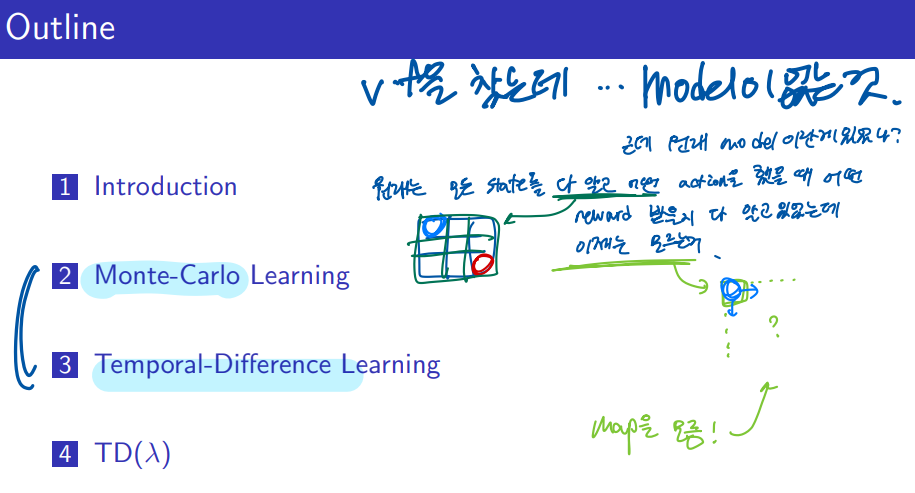 Outline
v f을 찾는데 ... model이 없는 것.
근데 원래 model 이란게 있었나?
1 Introduction
원래는 모든 state를 다 알고 어떤 action을 했을 때 어떤
reward 받을지 다 알고 있었는데
이제는 모르는거.
2 Monte-Carlo Learning
?
3 Temporal-Difference Learning
Map을 모름!
4 TD(λ)